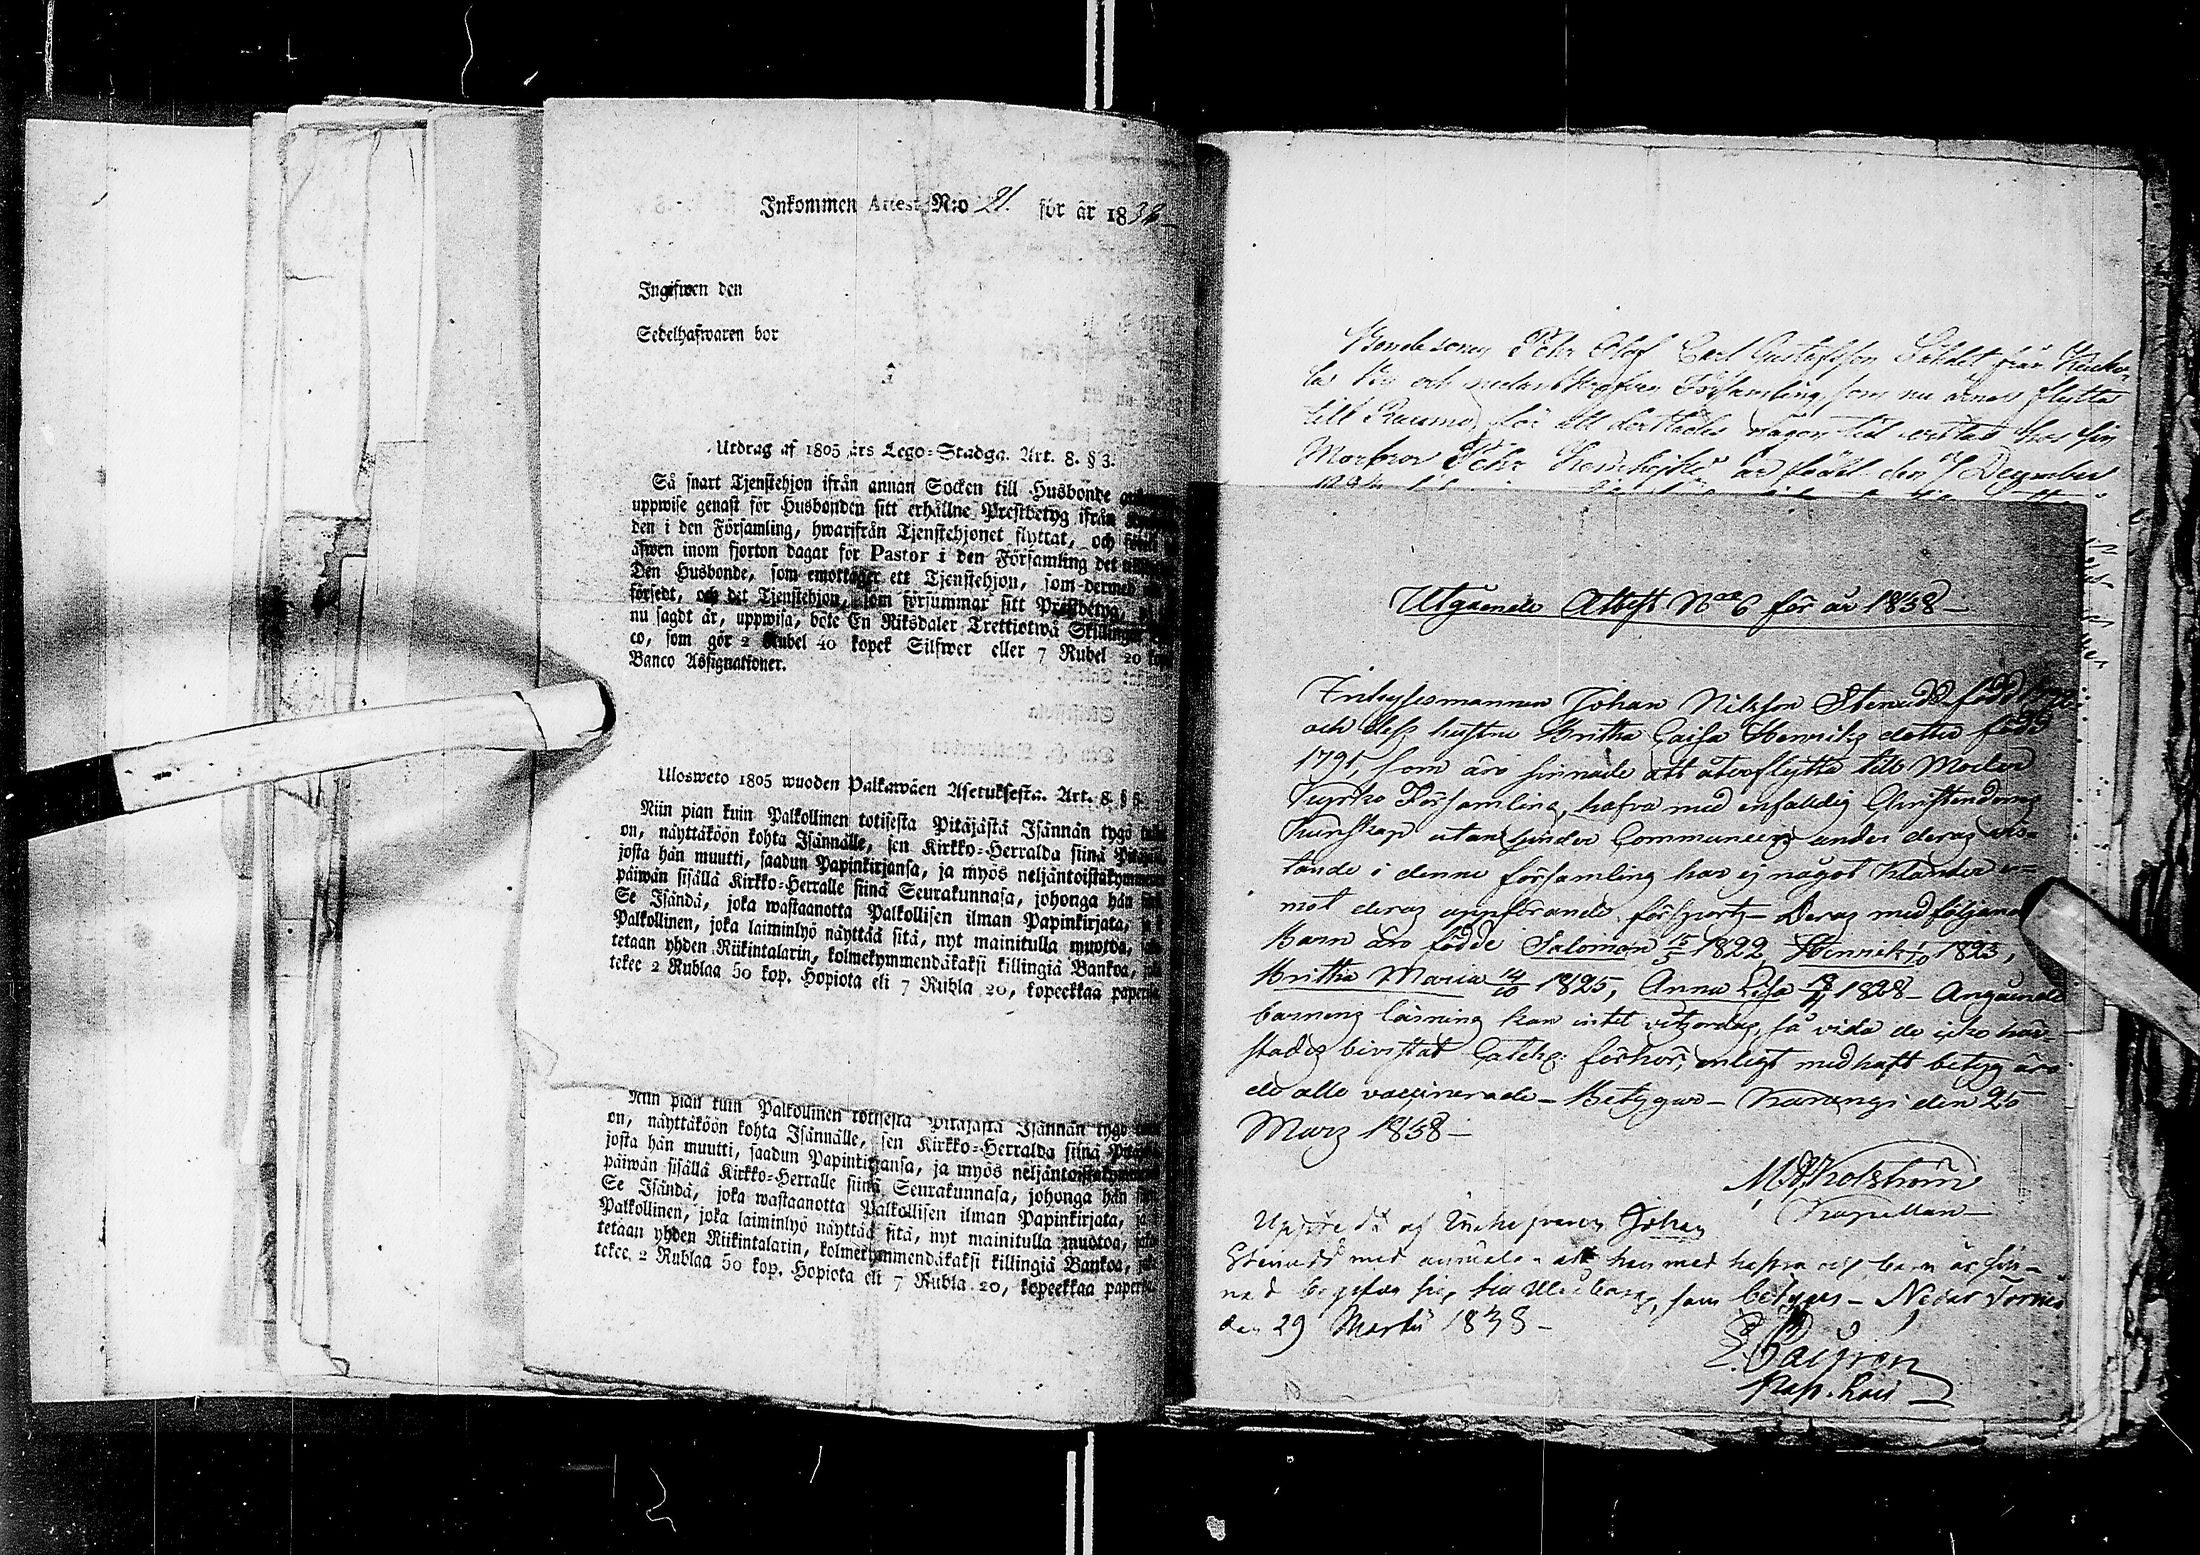 Inkommen Attest N:o 21. för år 1838
Ingifwen den
Sedelhafwaren bor
Utdrag af 1805 års Lego-Stadga. Art. 8. § 3.
Så snart Tjenstehjon ifrån annan Socken till Husbonde
uppwise genast för Husbonden sitt erhållne Prestbetyg ifrån
den i den Församling, hwarifrån Tjenstehjonet flyttat, och
äfwen inom fjorton dagar för Pastor i den Församling det
Den Husbonde, som emottager ett Tjenstehjon, som dermed
försedt, och det Tjenstehjon, som försummar sitt Prestbetyg,
nu sagdt är, uppwisa, böte En Riksdaler Trettiotwå Skillingar
co, som gör 2 Rubel 40 kopek Silfwer eller 7 Rubel 20 kop
Banco Assignationer.
Ulosweto 1805 wuoden Palkawäen Asetuksesta. Art. 8. § 3.
Niin pian kuin Palkollinen totisesta Pitäjästä Isännän tygö
on, näyttäköön kohta Isännälle, sen Kirkko-Herralda siinä
josta hän muutti, saadun Papinkirjansa, ja myös neljäntoistakymmenen
päiwän sisällä Kirkko-Herralle siinä Seurakunnasa, johonga hän
Se Isändä, joka wastaanotta Palkollisen ilman Papinkirjata,
Palkollinen, joka laiminlyö näyttää sitä, nyt mainitulla muotoa,
tetaan yhden Riikintalarin, kolmekymmendäkaksi killingiä Bankoa,
tekee 2 Rublaa 50 kop. Hopiota eli 7 Rubla 20, kopeekkaa
Niin pian kuin Palkollinen totisesta Pitäjästä Isännän tygö
on, näyttäköön kohta Isännälle, sen Kirkko-Herralda siinä
josta hän muutti, saadun Papinkirjansa, ja myös neljäntoistakymmenen
päiwän sisällä Kirkko-Herralle siinä Seurakunnasa, johonga hän
Se Isändä, joka wastaanotta Palkollisen ilman Papinkirjata,
Palkollinen, joka laiminlyö näyttää sitä, nyt mainitulla muotoa,
tetaan yhden Riikintalarin, kolmekymmendäkaksi killingiä Bankoa,
tekee 2 Rublaa 50 kop. Hopiota eli 7 Rubla 20, kopeekkaa
Bondesonen Pehr Olof Carl Gustafsson från
by och nedanskrefven Församling som nu ärnar flytta
till Raumo för att derstädes någon tid vistas hos sin
Morbror Pehr är född den December
Utgående Attest N 6 för år 1838
Inhysesmannen Johan Nilsson Stenudd född
och dess hustru Britha Caisa Henriks dotter född
1791, som äro sinnade att återflytta till Moder
Kyrko Församling, hafva med enfaldig Christendoms
Kunskap utan hinder Communicerat under deras vis-
tande i denne församling har ej något klander e-
mot deras uppförande försports – Deras medföljande
Barn äro födde Salomon 15/5 1822, Henrik 1/10 1823,
Britha Maria 14/10 1825, Anna Lisa 1828 – Angående
barnens läsning kan intet vitsordas, så vida de icke här-
städes bivistat Catchs: förhör; enligt medhaft betyg äro
de alle vaccinerade – Betygar – Karungi den 25
Marz 1838 –
Kapellan
Uppvist af Inhysesman Johan
Stenudd med anmälan att han med hustru och barn är sin-
nad begifva sig till Uleåborg, som betygas – Neder Torneå
den 29 Martii 1838 –